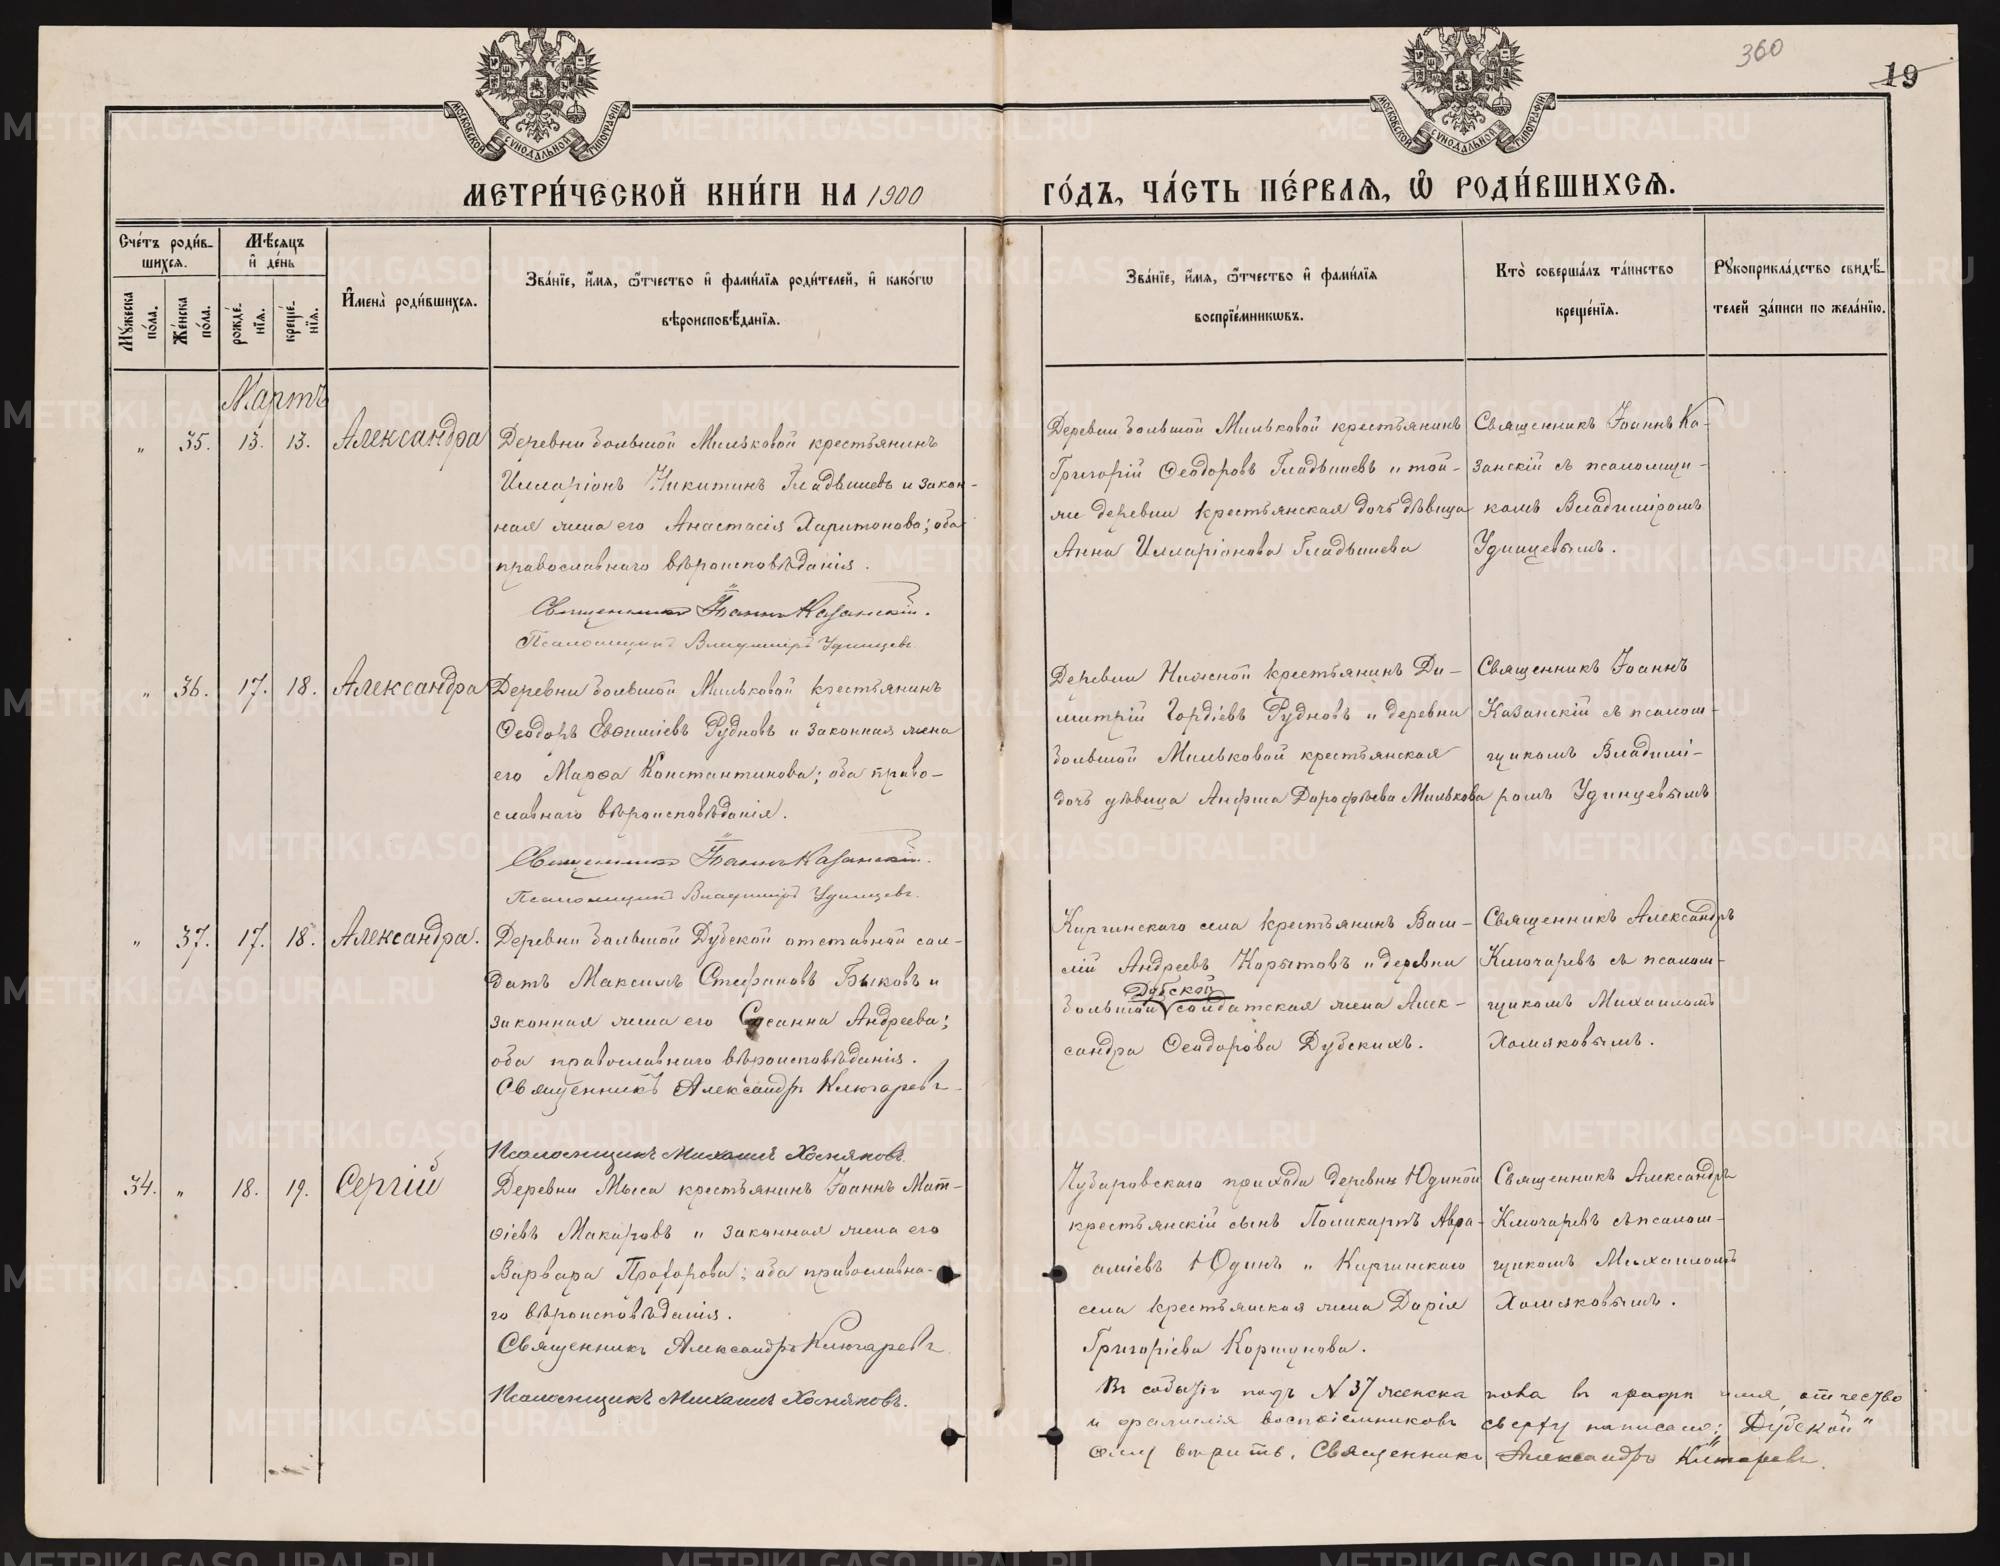 360
19
МОСКОВСКОЙ СѴНОДАЛЬНОЙ ТИПОГРАФІИ
МОСКОВСКОЙ СѴНОДАЛЬНОЙ ТИПОГРАФІИ
МЕТРИ́ЧЕСКОЙ КНИ́ГИ НА 1900 ГО́ДЪ, ЧА́СТЬ ПЕ́РВАЯ, Ѽ РОДИ́ВШИХСЯ.
Сче́тъ роди́в-
шихся.
Мꙋжеска по́ла.
Же́нска по́ла.
Мѣ́сяцъ
и҆ де́нь
рожде́-
нїя.
креще́-
нїя.
И҆мена̀ роди́вшихся.
Зва́нїе, и҆́мя, ѻ҆́тчество и҆ фами́лїя роди́телей, и҆ како́гѡ
вѣроисповѣ́данїя.
Зва́нїе, и҆́мя, ѻ҆́тчество и҆ фами́лїя
воспрїе́мникѡвъ.
Кто̀ соверша́лъ та́инство
креще́нїя.
Рꙋкоприкла́дство свидѣ́-
телей за́писи по жела́нїю.
Мартъ
„ 35. 13. 13. Александра
Деревни Большой Мильковой крестьянинъ
Илларіонъ Никитинъ Гладышевъ и закон-
ная жена его Анастасія Харитонова; оба
православнаго вѣроисповѣданія.
Священникъ Іоаннъ Казанскій.
Псаломщикъ Владиміръ Удинцевъ.
Деревни Большой Мильковой крестьянинъ
Григорій Ѳеодоровъ Гладышевъ и той-
же деревни крестьянская дочь дѣвица
Анна Илларіонова Гладышева
Священникъ Іоаннъ Ка-
занскій съ псаломщи-
комъ Владиміромъ
Удинцевымъ.
„ 36. 17. 18. Александра
Деревни Большой Мильковой крестьянинъ
Ѳеодоръ Евѳиміевъ Рудновъ и законная жена
его Марѳа Константинова; оба право-
славнаго вѣроисповѣданія.
Священникъ Іоаннъ Казанскій.
Псаломщикъ Владиміръ Удинцевъ.
Деревни крестьянинъ Ди-
митрій Гордіевъ Рудновъ и деревни
Большой Мильковой крестьянская
дочь дѣвица Анфиса Дорофѣева Милькова
Священникъ Іоаннъ
Казанскій съ псалом-
щикомъ Владимі-
ромъ Удинцевымъ
„ 37. 17. 18. Александра.
Деревни Большой Дубской отставной сол-
датъ Максимъ Стефановъ Быковъ и
законная жена его Сусанна Андреева;
оба православнаго вѣроисповѣданія.
Священникъ Александръ Ключаревъ
Псаломщикъ Михаилъ Хомяковъ.
Киргинскаго села крестьянинъ Васи-
лій Андреевъ Корытовъ и деревни
Дубской
Большой солдатская жена Алек-
сандра Ѳеодорова Дубскихъ.
Священникъ Александръ
Ключаревъ съ псалом-
щикомъ Михаиломъ
Хомяковымъ.
34. „ 18. 19. Сергій
Деревни Мыса крестьянинъ Іоаннъ Мат-
ѳіевъ Макаровъ и законная жена его
Варвара Прохорова; оба православна-
го вѣроисповѣданія.
Священникъ Александръ Ключаревъ
Псаломщикъ Михаилъ Хомяковъ.
Чубаровскаго прихода деревни Юдиной
крестьянскій сынъ Поликарпъ Авра-
аміевъ Юдинъ и Киргинскаго
села крестьянская жена Дарія
Григоріева Коршунова.
Священникъ Александръ
Ключаревъ съ псалом-
щикомъ Михаиломъ
Хомяковымъ.
Въ событіи подъ N 37 женска пола въ графѣ имя, отчество
и фамилія воспріемниковъ сверху написано: „Дубской"
сему вѣрить. Священникъ Александръ Ключаревъ.